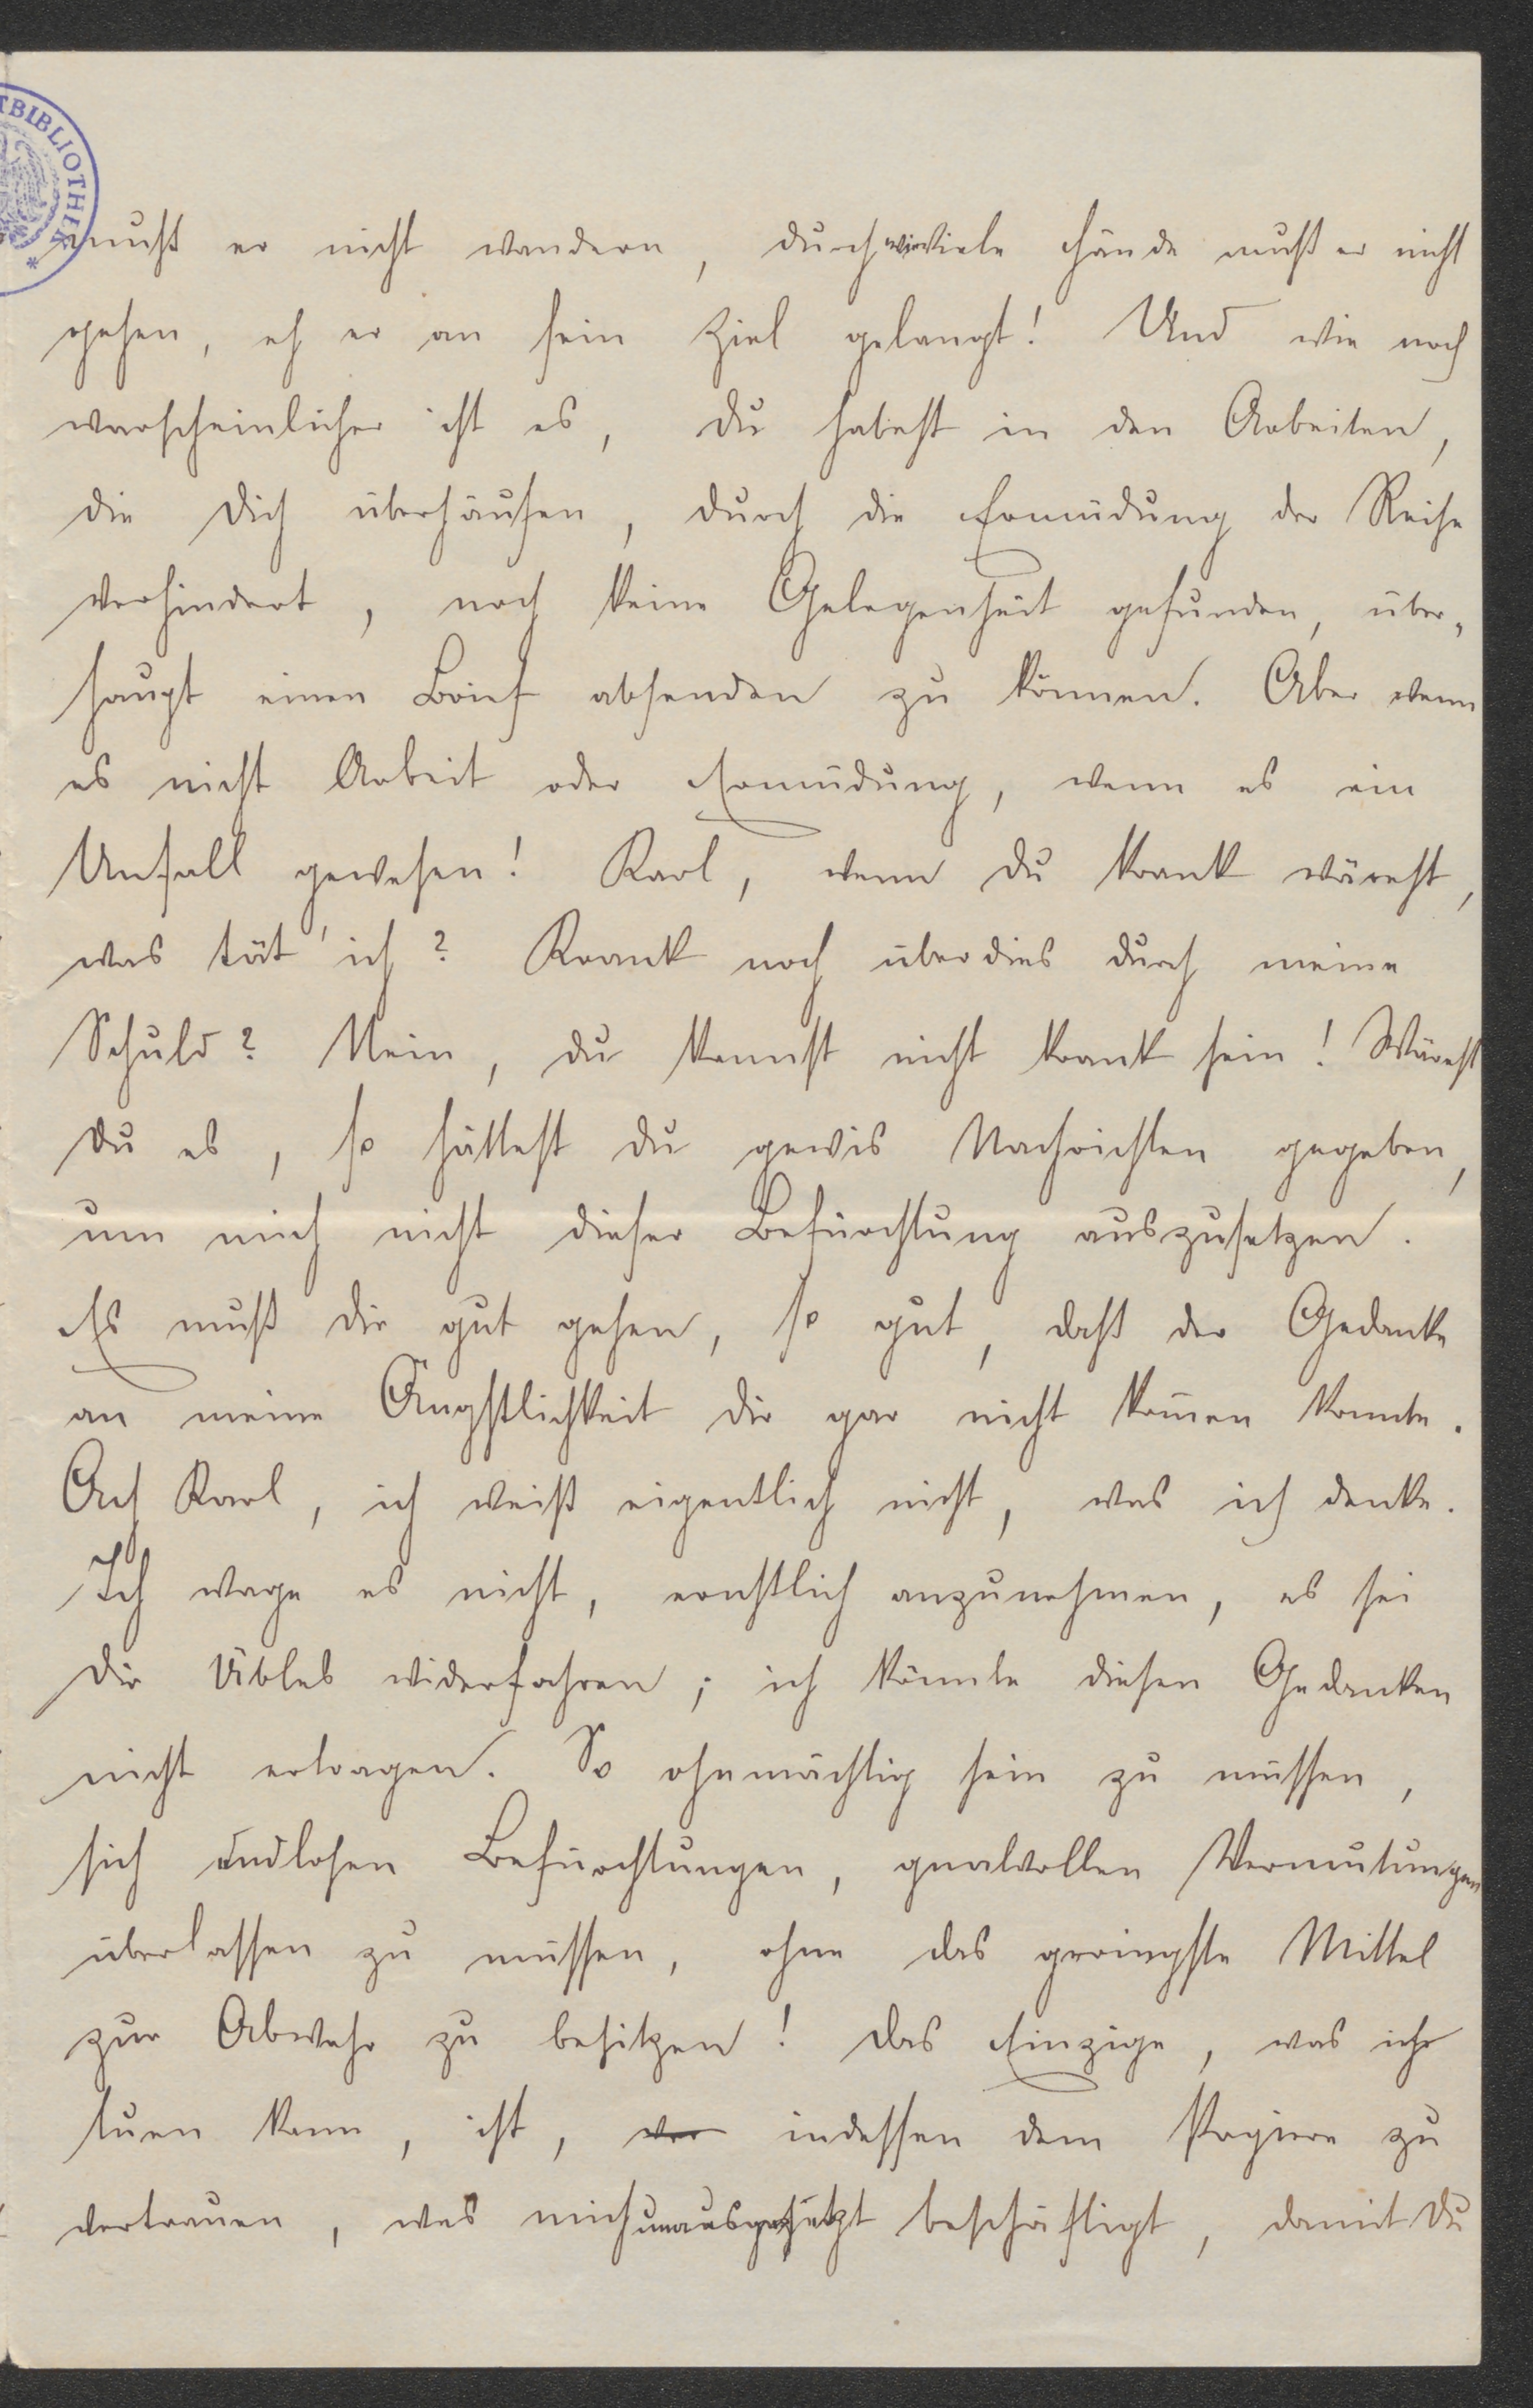 TBIBLIOTHEK *
muß er nicht wandern, durch wieviele Hände muß er nicht
gehen, eh er an sein Ziel gelangt! Und wie noch
warscheinlicher ist es, Du habest in den Arbeiten,
die Dich überhäufen, durch die Ermüdung der Reise
verhindert, noch keine Gelegenheit gefunden, über-
haupt einen Brief absenden zu können. Aber wenn
es nicht Arbeit oder Ermüdung, wenn es ein
Unfall gewesen! Karl, wenn Du krank wärest,
was tät' ich? Krank noch überdies durch meine
Schuld? Nein, du kannst nicht krank sein! Wärest
Du es, so hättest Du gewis Nachrichten gegeben,
um mich nicht dieser Befürchtung auszusetzen.
Es muß dir gut gehen, so gut, daß der Gedanke
an meine Ängstlichkeit dir gar nicht kom̄en konnte.
Ach Karl, ich weiß eigentlich nicht, was ich denke.
Ich wage es nicht, ernstlich anzunehmen, es sei
Dir Übles widerfahren; ich könnte diesen Gedanken
nicht ertragen. So ohnmächtig sein zu müssen,
sich endlosen Befürchtungen, qualvollen Vermutungen
überlassen zu müssen, ohne das geringste Mittel
zur Abwehr zu besitzen! Das Einzige, was ich
tuen kann, ist, ver indessen dem Papiere zu
vertrauen, was mich unausgesetzt beschäftigt, damit Du